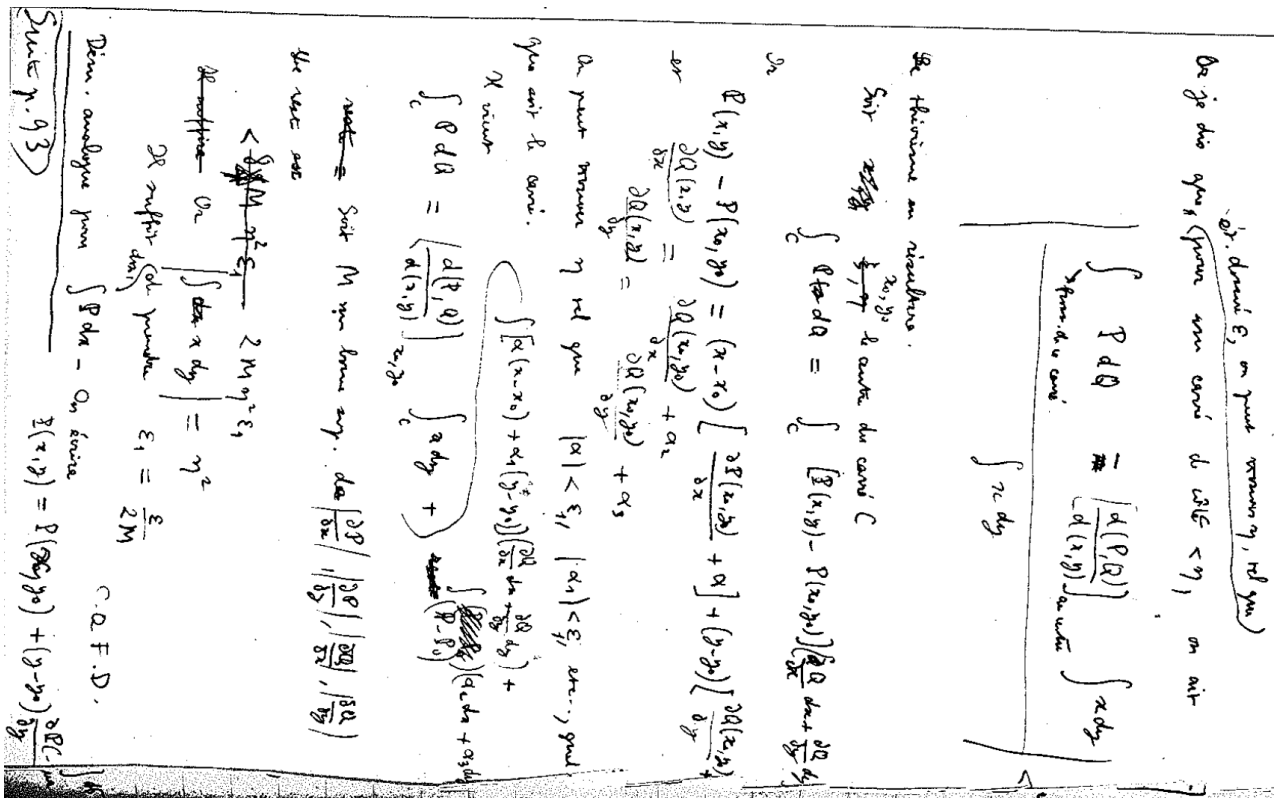 ét. donné ε, on peut trouver η, tel que
Or je dis que, pour un carré de côté < η, on ait
∫ P dQ = [d(P,Q)/d(x,y)] au centre ∫ x dy
front. de ce carré
∫ x dy
<
Le théorème en résultera.
Soit x₀, y₀ le centre du carré C
∫_C P dQ = ∫_C [P(x,y) − P(x₀,y₀)] [∂Q/∂x dx + ∂Q/∂y dy]
Or
P(x,y) − P(x₀,y₀) = (x−x₀) [∂P(x₀,y₀)/∂x + α] + (y−y₀) [∂Q(x₀,y₀)/∂y +
et ∂Q(x,y)/∂x = ∂Q(x₀,y₀)/∂x + α₂
∂Q(x,y)/∂y = ∂Q(x₀,y₀)/∂y + α₃
On peut trouver η tel que |α| < ε₁, |α₁| < ε₁, etc..., quel
que soit le carré.
Il vient
∫_C P dQ = [d(P,Q)/d(x,y)]_{x₀,y₀} ∫_C x dy +
∫ [α(x−x₀) + α₁(y−y₀)] (∂Q/∂x dx + ∂Q/∂y dy) +
∫ (P−P₀) (α₂dx + α₃dy
Soit M une borne sup. des |∂P/∂x|, |∂P/∂y|, |∂Q/∂x|, |∂Q/∂y|
Le reste est
< 2Mη²ε₁
Or |∫ x dy| = η²
Il suffit donc de prendre ε₁ = ε/2M
C.Q.F.D.
Dém. analogue pour ∫ P dx − On écrira
P(x,y) = P(x,y₀) + (y−y₀) ∂P(
(Suite p. 93)